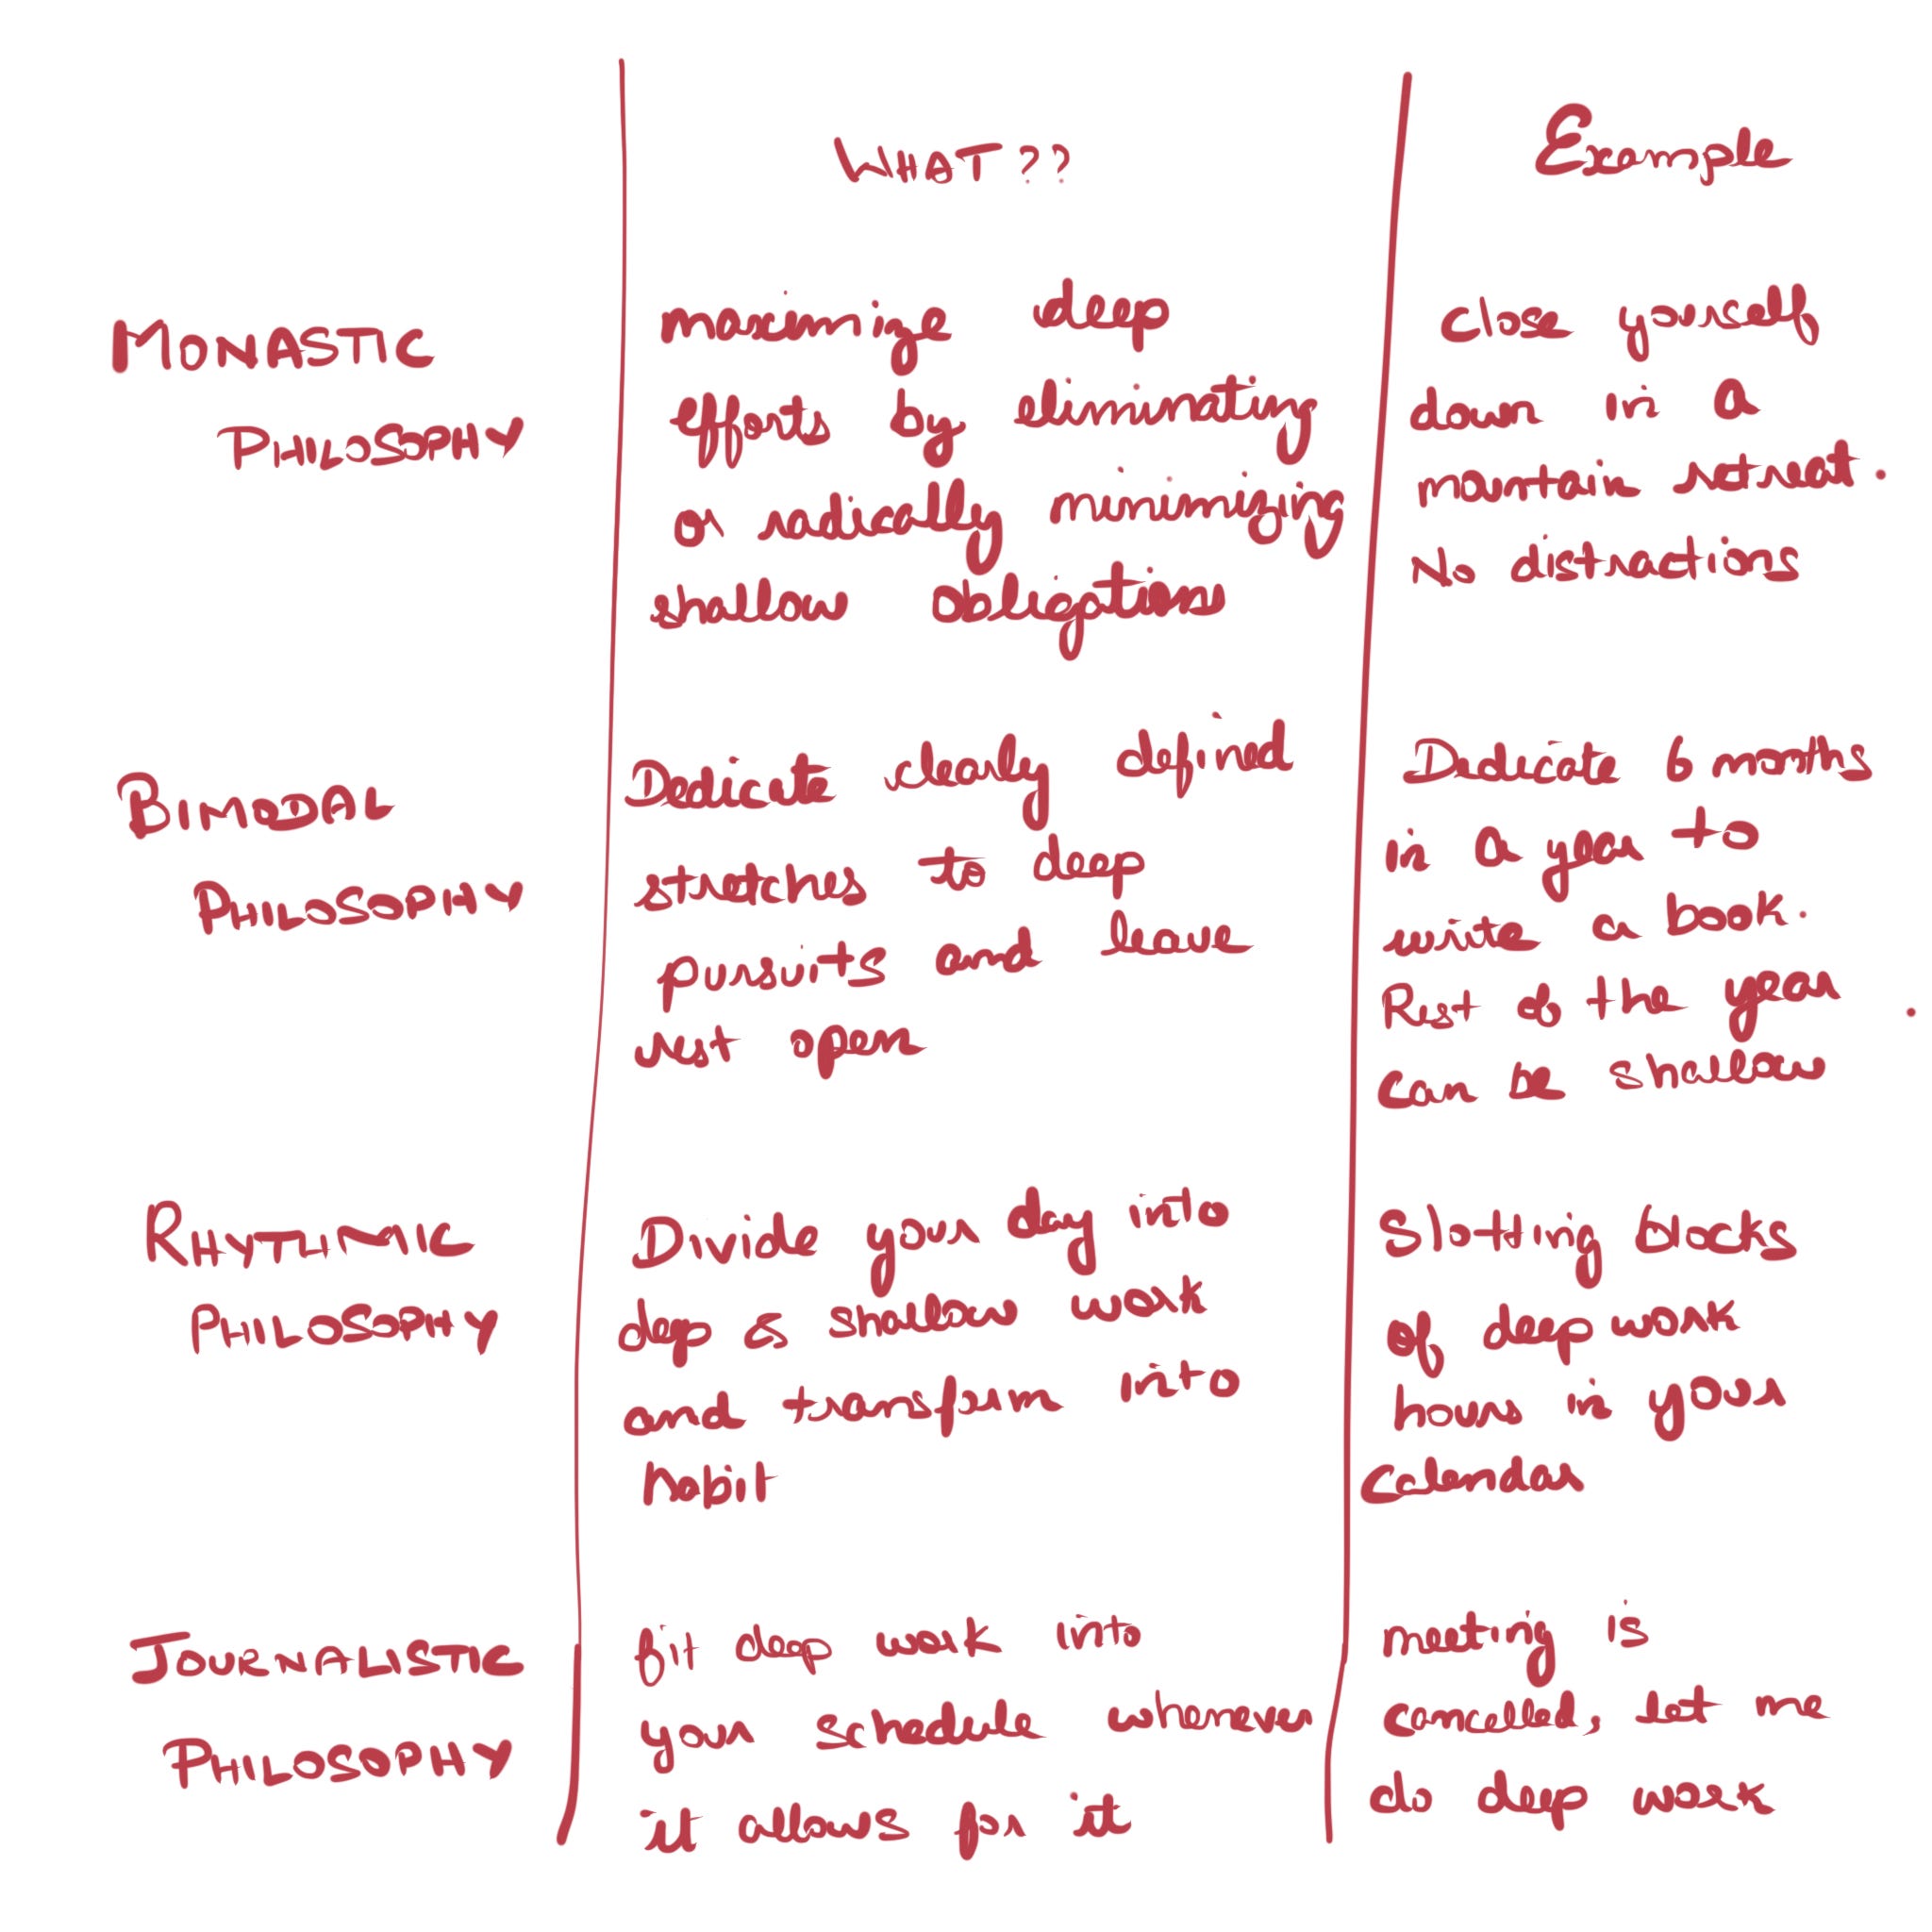 WHAT??
Example
MONASTIC
PHILOSOPHY
maximize deep
efforts by eliminating
or radically minimizing
shallow obligations
close yourself
down in a
mountain retreat.
No distractions
BIMODAL
PHILOSOPHY
Dedicate clearly defined
stretches to deep
pursuits and leave
rest open
Dedicate 6 months
in a year to
write a book.
Rest of the year.
can be shallow
RHYTHMIC
PHILOSOPHY
Divide your day into
deep & shallow work
and transform into
habit
Slotting blocks
of deep work
hours in your
Calendar
JOURNALISTIC
PHILOSOPHY
fit deep work into
your schedule whenever
it allows for it
meeting is
cancelled, let me
do deep work